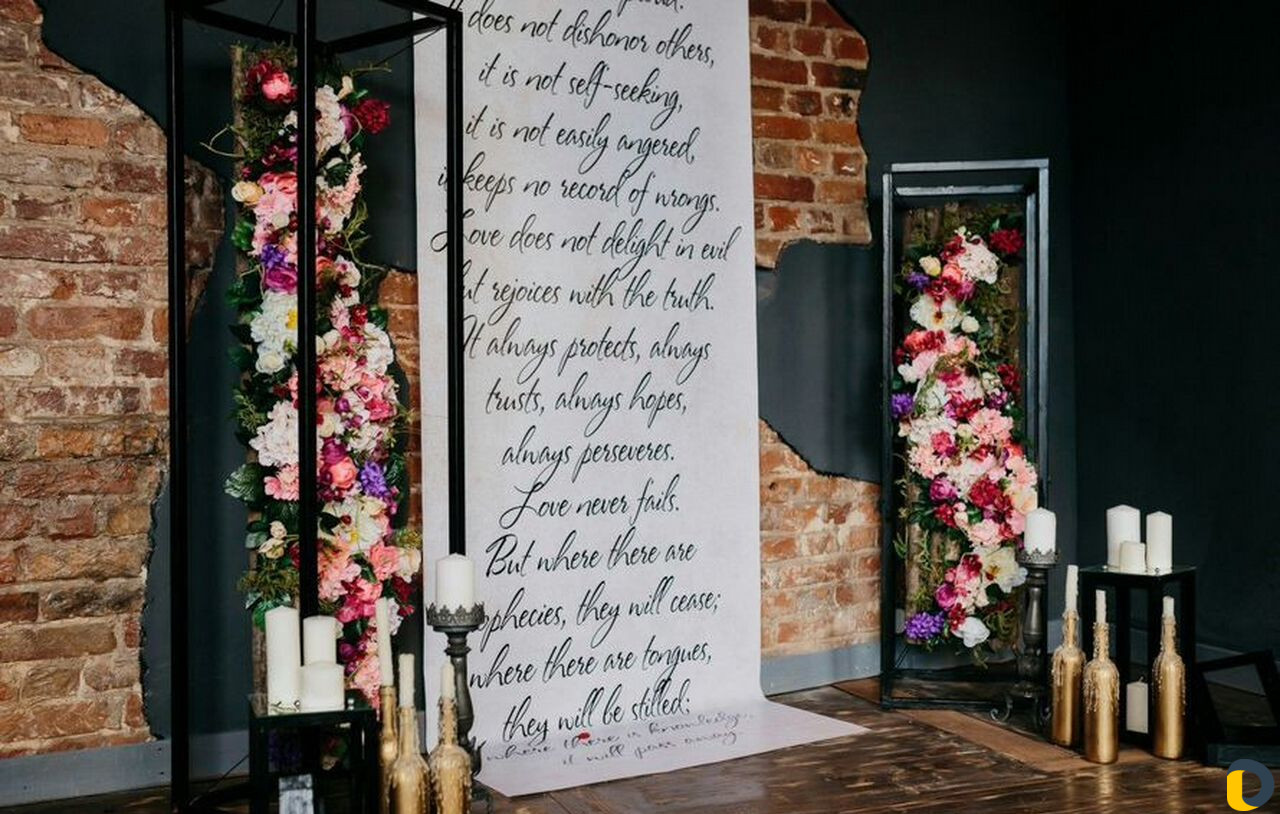 proud.
It does not dishonor others,
it is not self-seeking,
it is not easily angered,
it keeps no record of wrongs.
Love does not delight in evil
but rejoices with the truth.
It always protects, always
trusts, always hopes,
always perseveres.
Love never fails.
But where there are
prophecies, they will cease;
where there are tongues,
they will be stilled;
where there is knowledge,
it will pass away.